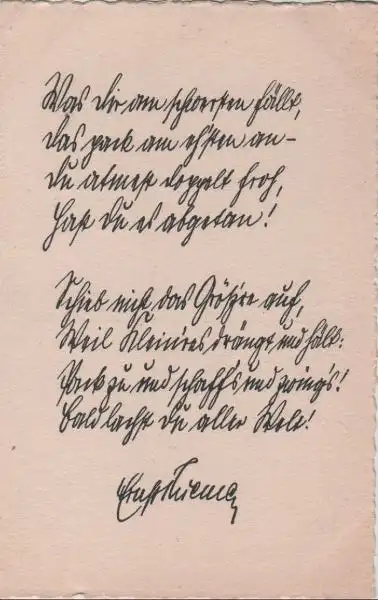 Was dir am schwersten fällt,
das pack am ehsten an –
Du atmest doppelt froh,
Hast du es abgetan!
Schieb nicht das Größre auf,
Weil Kleinres drängt und hält:
Pack zu und schaff's und zwing's!
Bald lachst du aller Welt!
Ernst